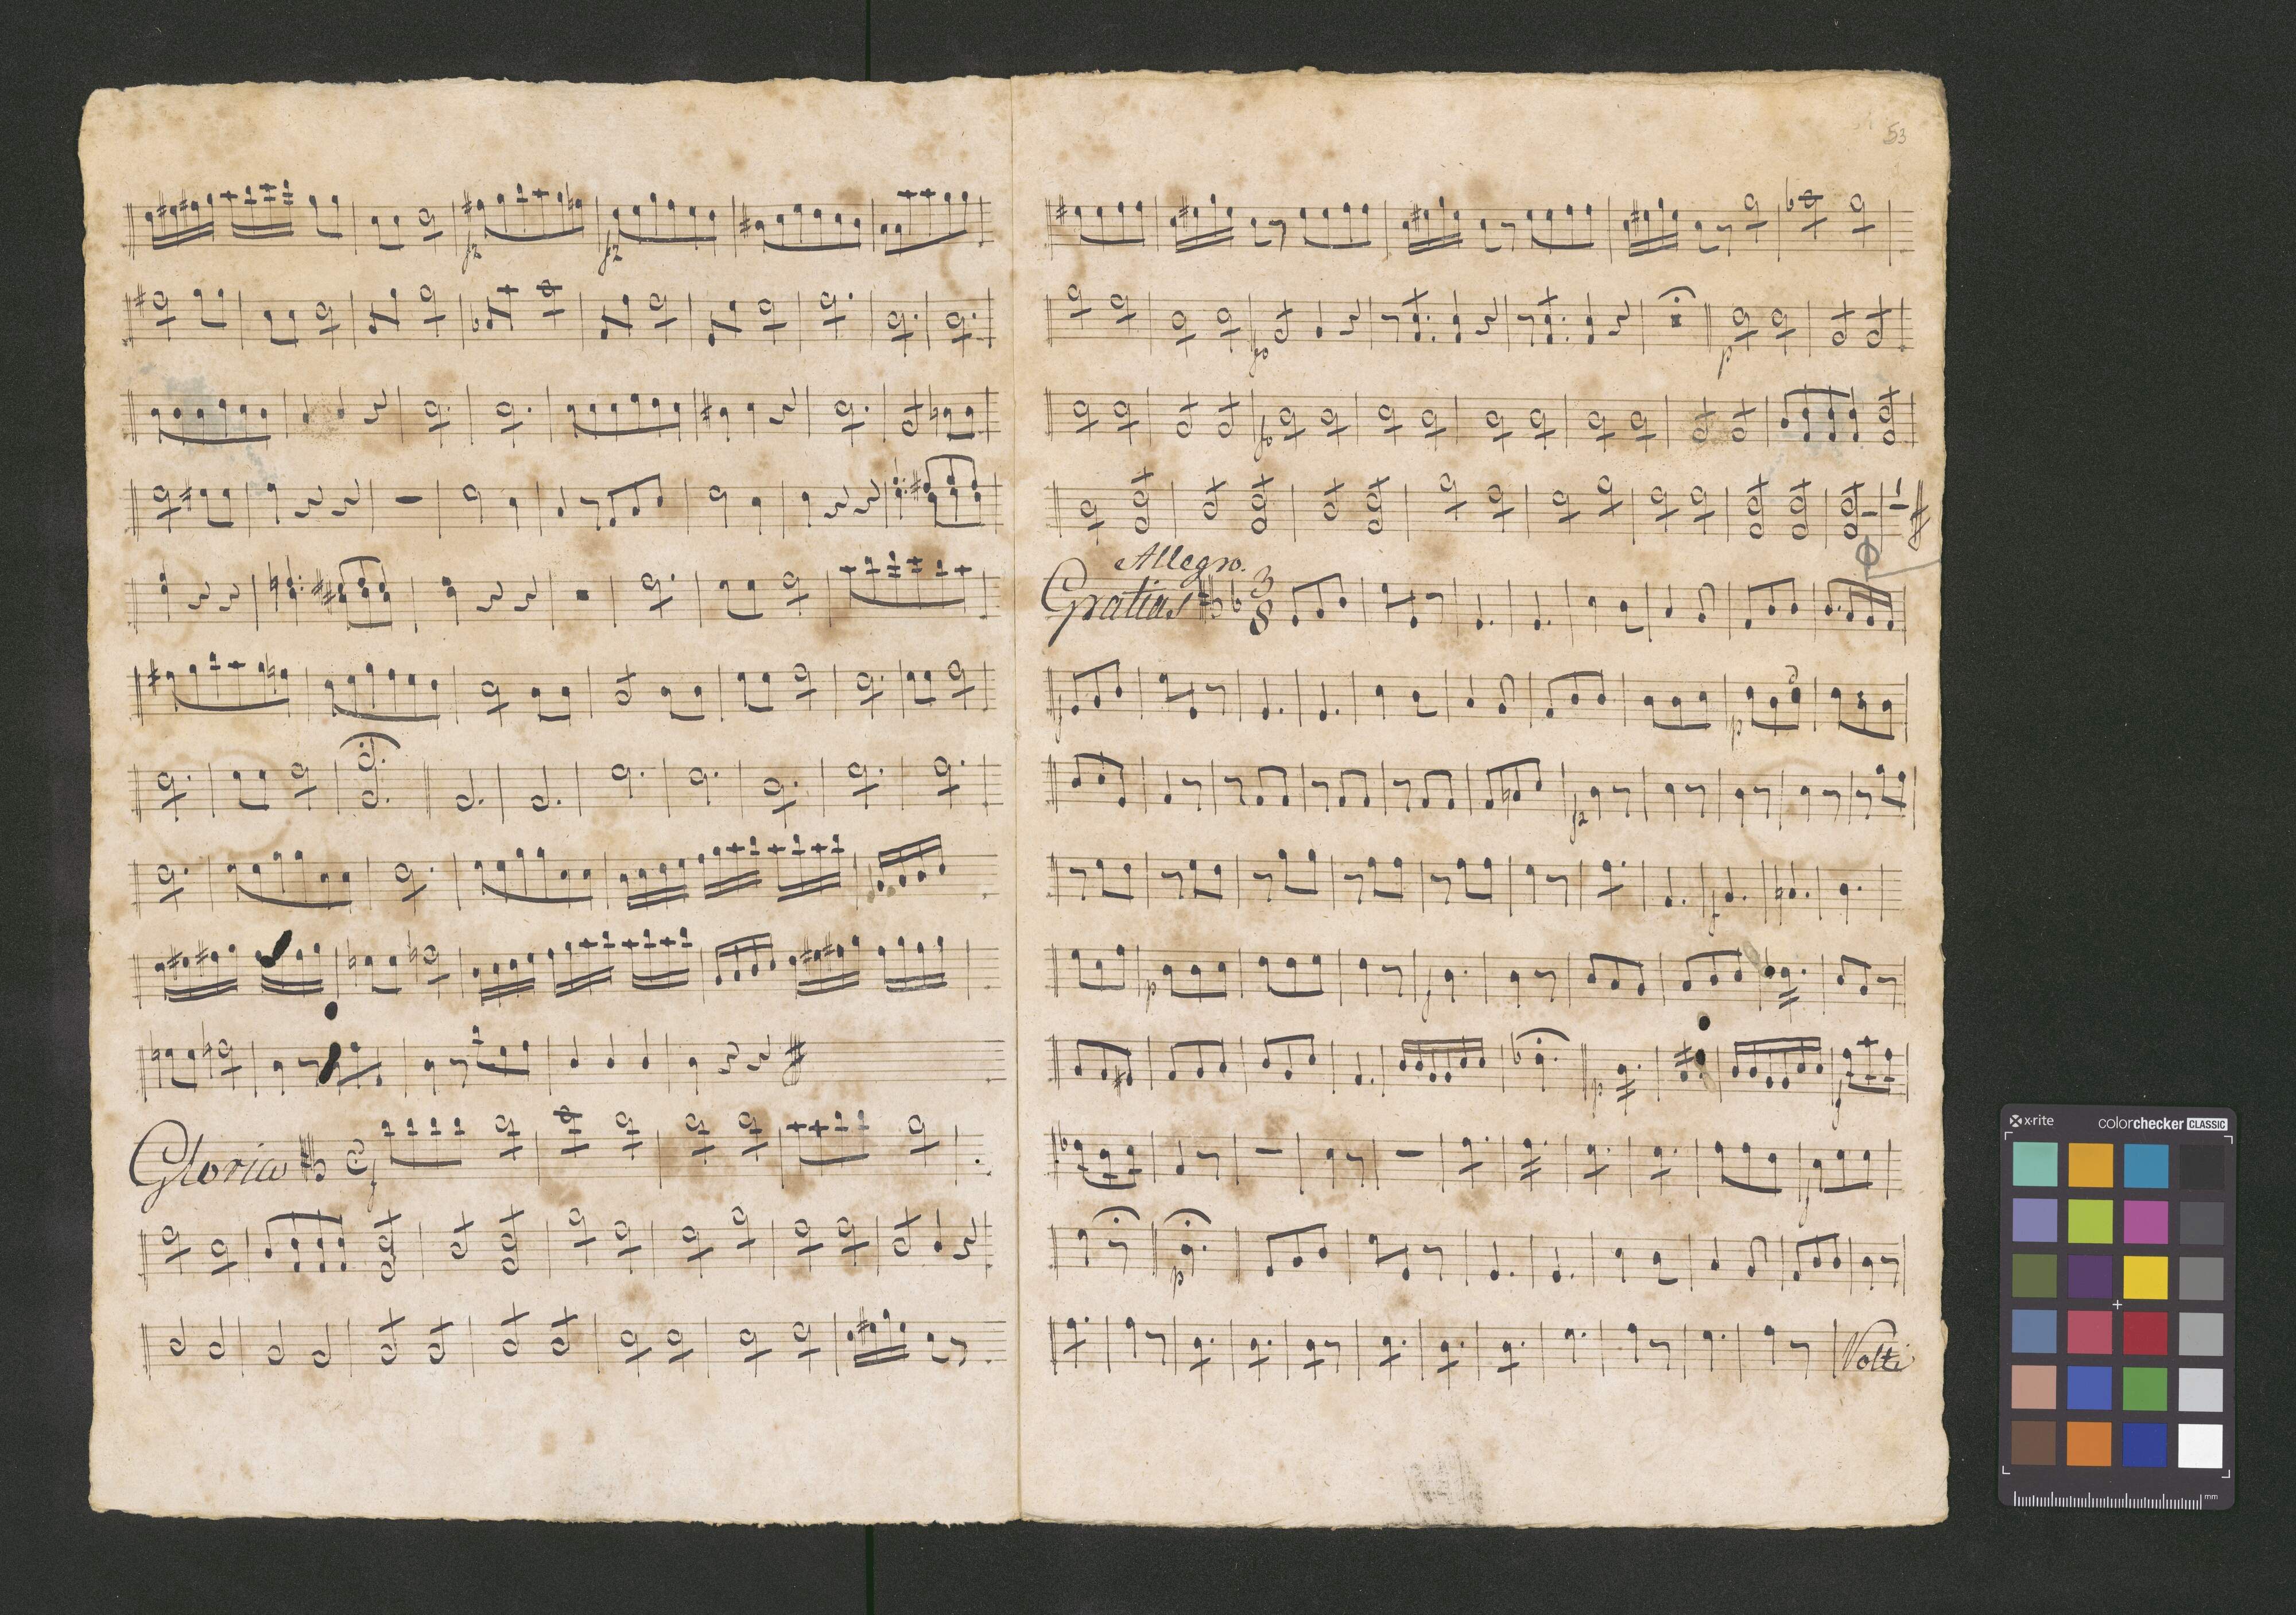 53
Gloria
Allegro.
Gratias
3
8
Volti
x-rite
colorchecker CLASSIC
mm